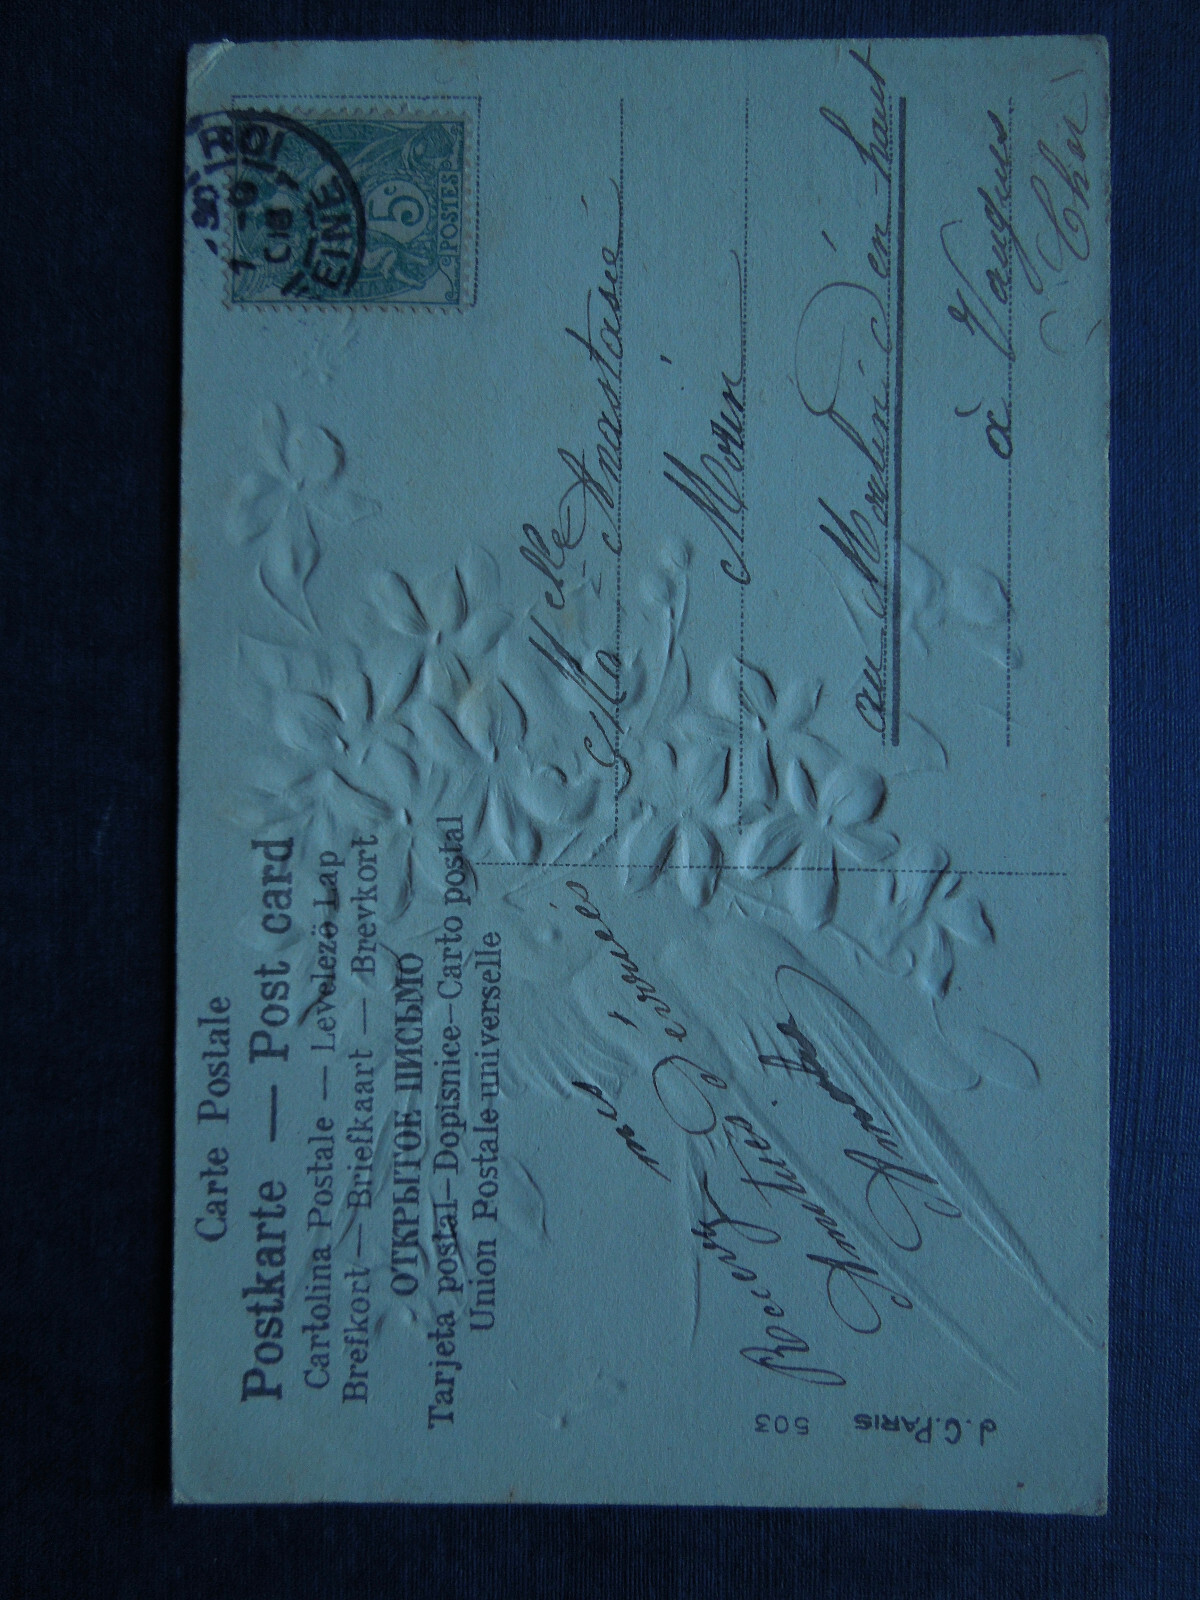 Carte Postale
Postkarte — Post card
Cartolina Postale — Levelezö Lap
Brefkort — Briefkaart — Brevkort
ОТКРЫТОЕ ПИСЬМО
Tarjeta postal — Dopisnice — Carto postal
Union Postale universelle
5c
POSTES
EINE
Recevez
mes
amitiés
J.C. PARIS
503
Anastasie
Morin
au d'en-haut
à
Cher